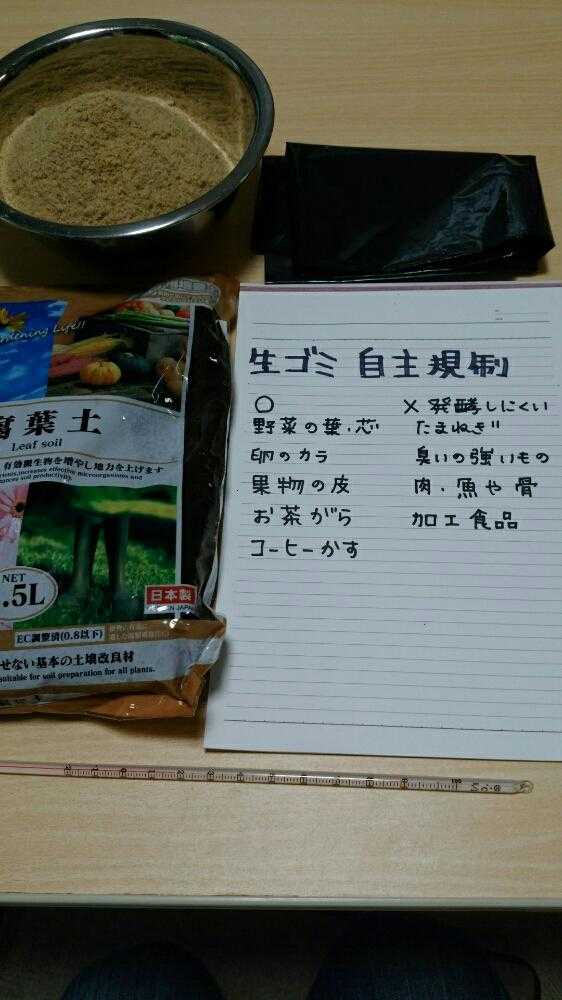 rdening Life!!
腐葉土
Leaf soil
有効微生物を増やし地力を上げます
NET
.5L
日本製
EC調整済(0.8以下)
せない基本の土壌改良材
suitable for soil preparation for all plants.
生ゴミ 自主規制
○
野菜の葉・芯
卵のカラ
果物の皮
お茶がら
コーヒーかす
×発酵しにくい
たまねぎ
臭いの強いもの
肉・魚や骨
加工食品